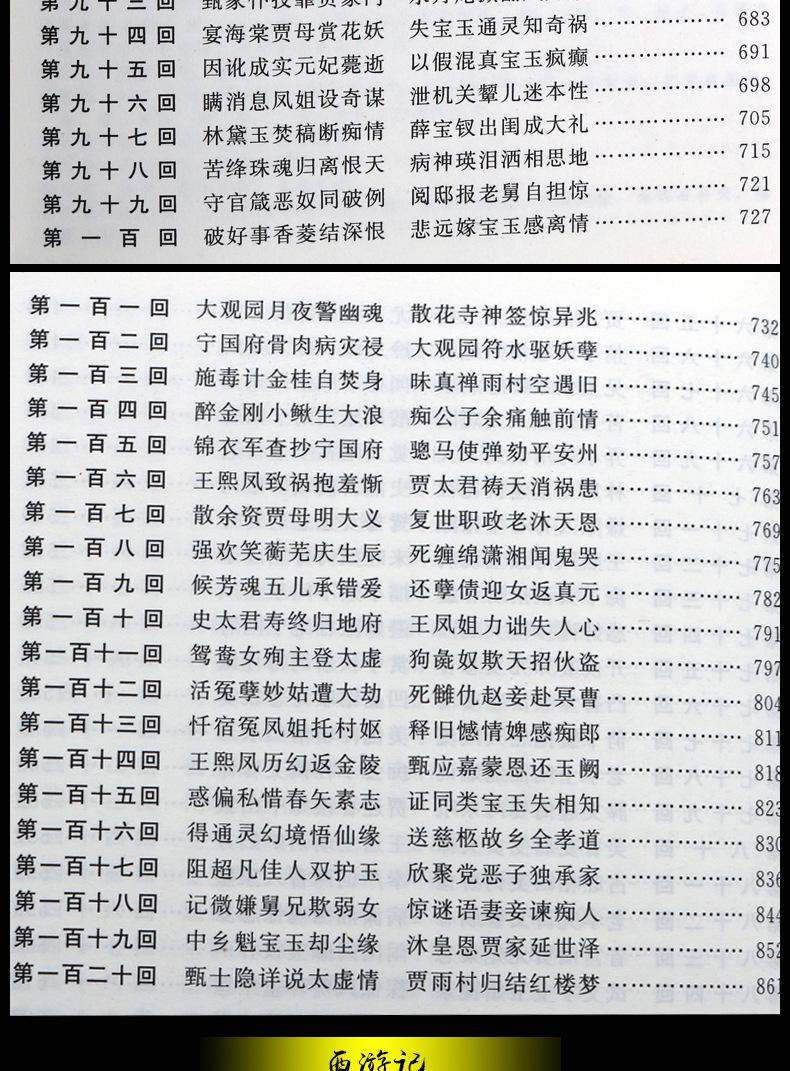 第九十三回 甄家仆投靠贾家门
第九十四回 宴海棠贾母赏花妖 失宝玉通灵知奇祸 683
第九十五回 因讹成实元妃薨逝 以假混真宝玉疯癫 691
第九十六回 瞒消息凤姐设奇谋 泄机关颦儿迷本性 698
第九十七回 林黛玉焚稿断痴情 薛宝钗出闺成大礼 705
第九十八回 苦绛珠魂归离恨天 病神瑛泪洒相思地 715
第九十九回 守官箴恶奴同破例 阅邸报老舅自担惊 721
第一百回 破好事香菱结深恨 悲远嫁宝玉感离情 727
第一百一回 大观园月夜警幽魂 散花寺神签惊异兆 732
第一百二回 宁国府骨肉病灾祲 大观园符水驱妖孽 740
第一百三回 施毒计金桂自焚身 昧真禅雨村空遇旧 745
第一百四回 醉金刚小鳅生大浪 痴公子余痛触前情 751
第一百五回 锦衣军查抄宁国府 骢马使弹劾平安州 757
第一百六回 王熙凤致祸抱羞惭 贾太君祷天消祸患 763
第一百七回 散余资贾母明大义 复世职政老沐天恩 769
第一百八回 强欢笑蘅芜庆生辰 死缠绵潇湘闻鬼哭 775
第一百九回 候芳魂五儿承错爱 还孽债迎女返真元 782
第一百十回 史太君寿终归地府 王凤姐力诎失人心 791
第一百十一回 鸳鸯女殉主登太虚 狗彘奴欺天招伙盗 797
第一百十二回 活冤孽妙姑遭大劫 死雠仇赵妾赴冥曹 804
第一百十三回 忏宿冤凤姐托村妪 释旧憾情婢感痴郎 811
第一百十四回 王熙凤历幻返金陵 甄应嘉蒙恩还玉阙 818
第一百十五回 惑偏私惜春矢素志 证同类宝玉失相知 823
第一百十六回 得通灵幻境悟仙缘 送慈柩故乡全孝道 830
第一百十七回 阻超凡佳人双护玉 欣聚党恶子独承家 836
第一百十八回 记微嫌舅兄欺弱女 惊谜语妻妾谏痴人 844
第一百十九回 中乡魁宝玉却尘缘 沐皇恩贾家延世泽 852
第一百二十回 甄士隐详说太虚情 贾雨村归结红楼梦 861
西游记